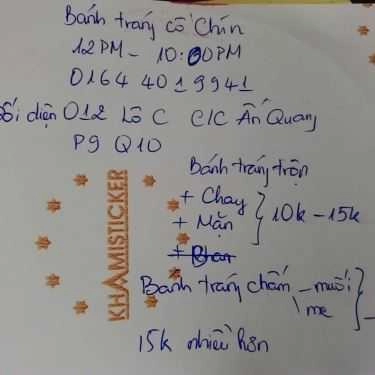 Bánh tráng cô Chín
12PM - 10:00PM
0164 401 9941
đối diện 012 Lô C C/C Ấn Quang
P9 Q10
Bánh tráng trộn
+ Chay
+ Mặn
10k - 15k
+
Bánh tráng chấm - muối
me
15k nhiều hơn
KHAMISTICKER